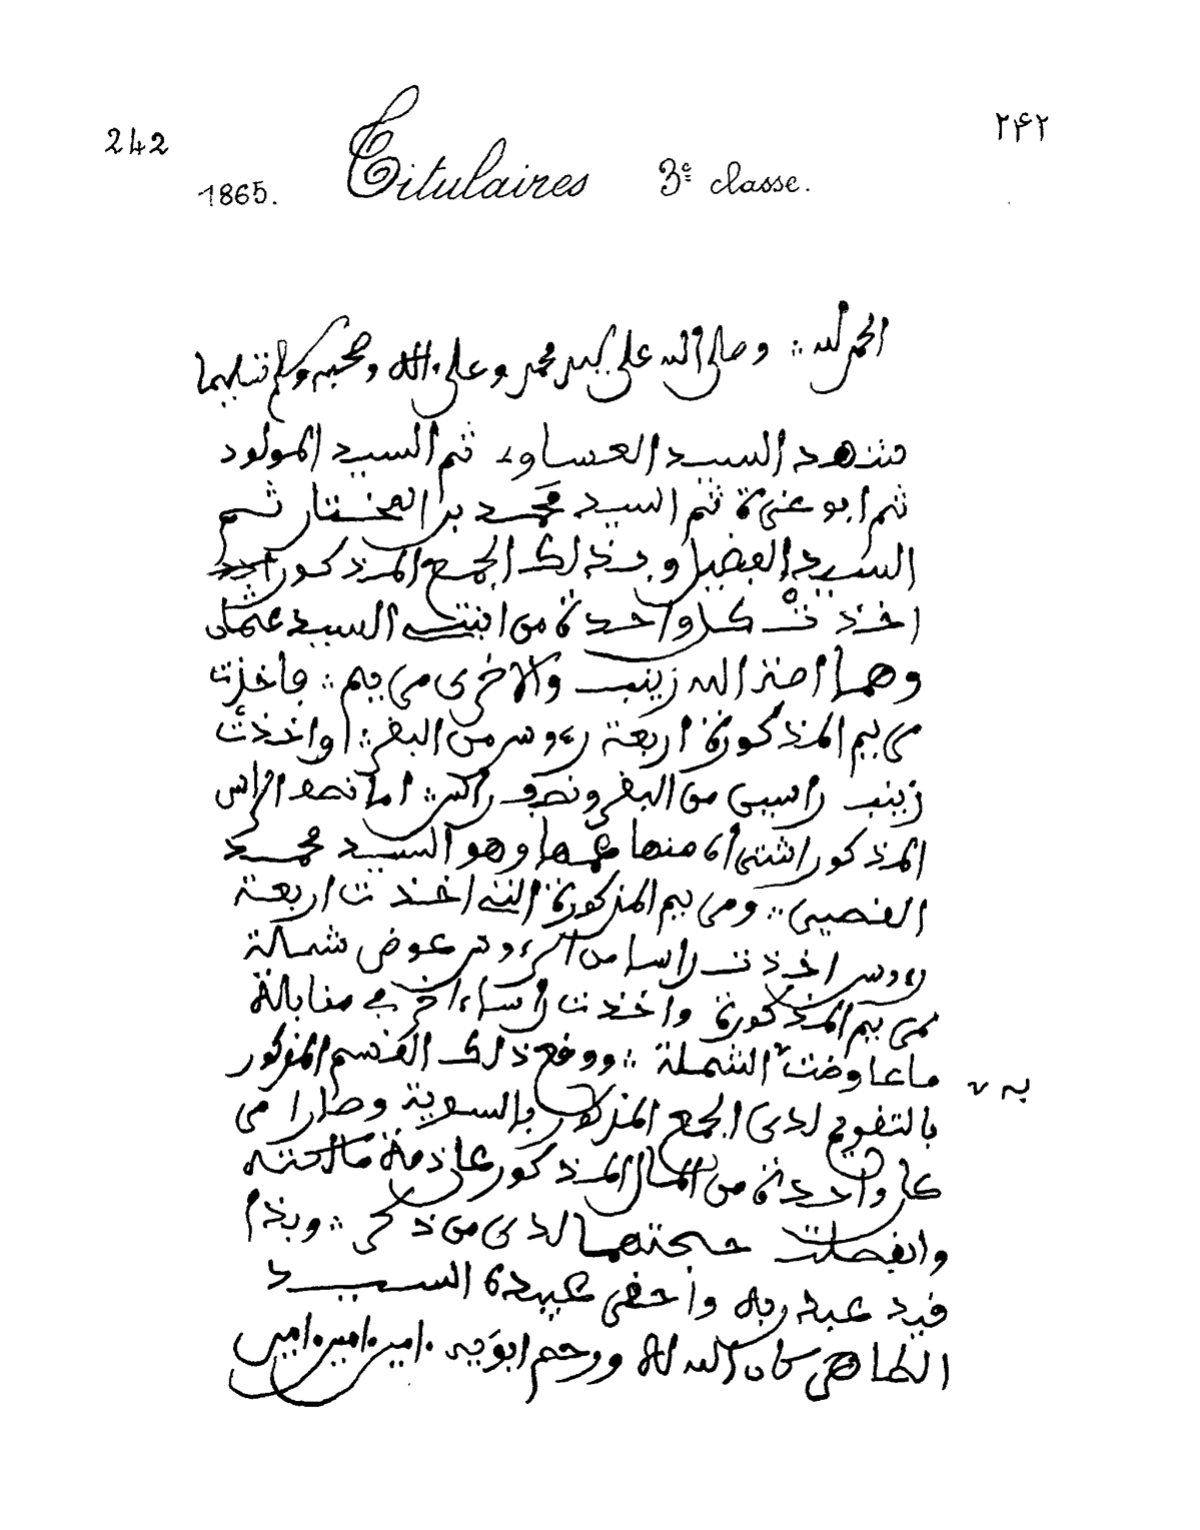 242
٢۴٢
1865. Titulaires 3e classe.
الحمد لله وصلى الله على سيدنا محمد وعلى ءاله وصحبه وسلم تسليما
شهد السيد العساوى ثم السيد المولود
ثم ابو عنزة ثم السيد محمد بن المختار ثم
السيد الفضيل وبذلك الجمع المذكور
اخذت كل واحدة من ابنتى السيد عثمان
وهما امنة الله زينب والاخرى مريم ∴ فاخذت
مريم المذكورة اربعة رءوس من البقر ∴ واخذت
زينب راسين من البقر ونصف راس ∴ اما نصف الراس
المذكور اشتراه منها عمها وهو السيد محمد
∴ ومريم المذكورة التى اخذت اربعة
رءوس اخذت راسا من الرءوس عوض شملة
مريم المذكورة واخذت راسا ءاخر فى مقابلة
ما عاوضت به الشملة ∴ ووقع ذلك القسم المذكور
بالتقويم لدى الجمع المذكور بالسوية وصار من
كل واحدة من المال المذكور على ذمة مالكته
وانفصلت حجتهما لدى من ذكر ∴ وبذا
قيد عبد ربه واحقر عبيده السيد
الطاهر كان الله له ورحم ابويه ٠ امين ٠ امين ٠ امين